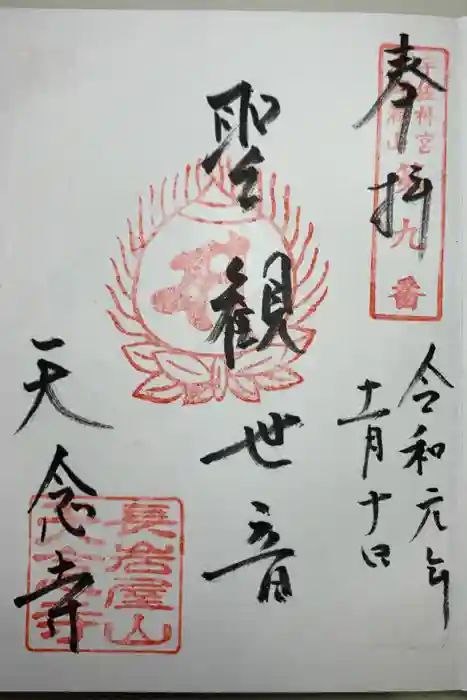 奉拝
九番
令和元年
十一月十日
聖観世音
天念寺
長岩屋山